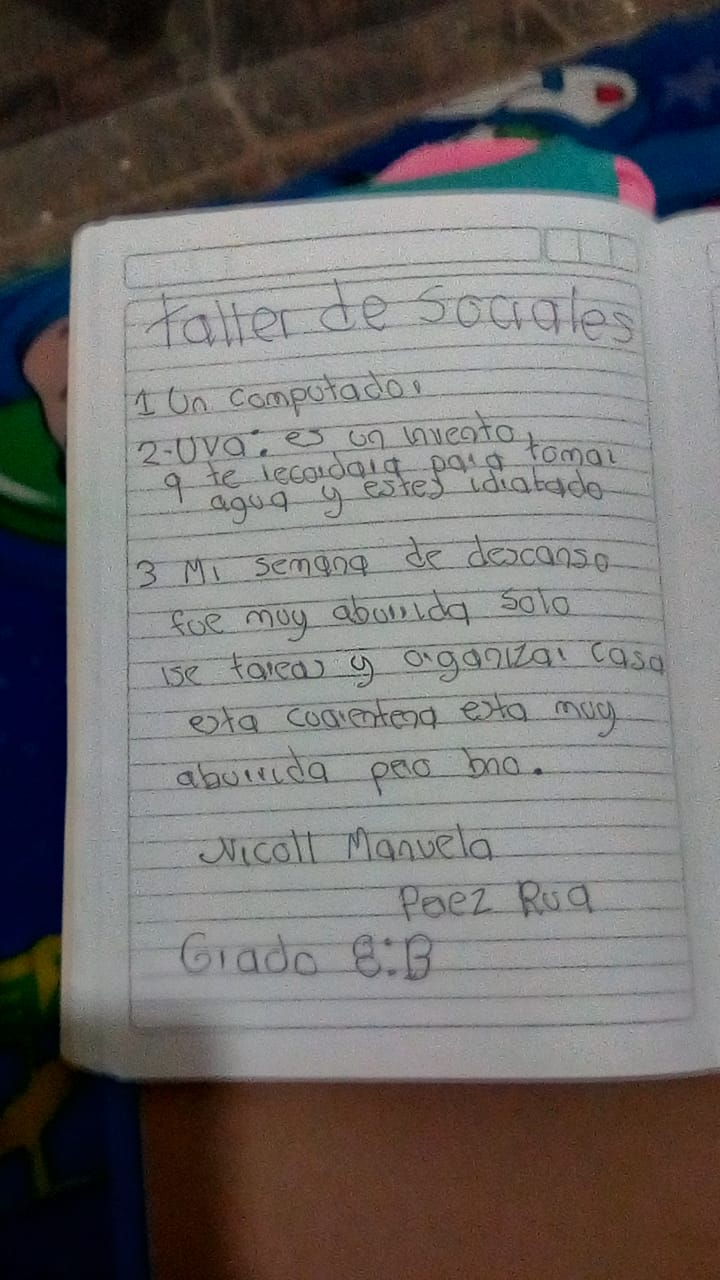 taller de Sociales
1 Un computador
2-UVa: es un invento
q te recordara para tomar
agua y estes idratado
3 Mi semana de descanso
fue muy aburrida solo
ise tareas y organizar casa
esta cuarentena esta muy
aburrida pero bno.
Nicoll Manuela
Paez Rua
Grado 8:B